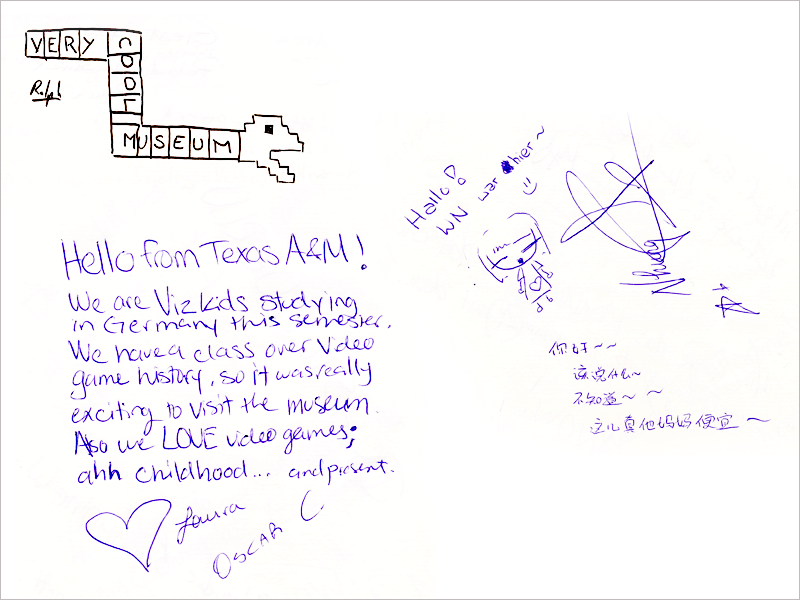 VERY
COOL
MUSEUM
Ralph
Hello from Texas A&M!
We are Vizkids studying
in Germany this semester.
We have a class over Video
game history, so it was really
exciting to visit the museum.
Also we LOVE video games;
ahh childhood... and present.
Laura
OSCAR C.
Hallo!
WN war hier~
你好~~
该说什么~
不知道~ ~
这儿真他妈妈便宜~